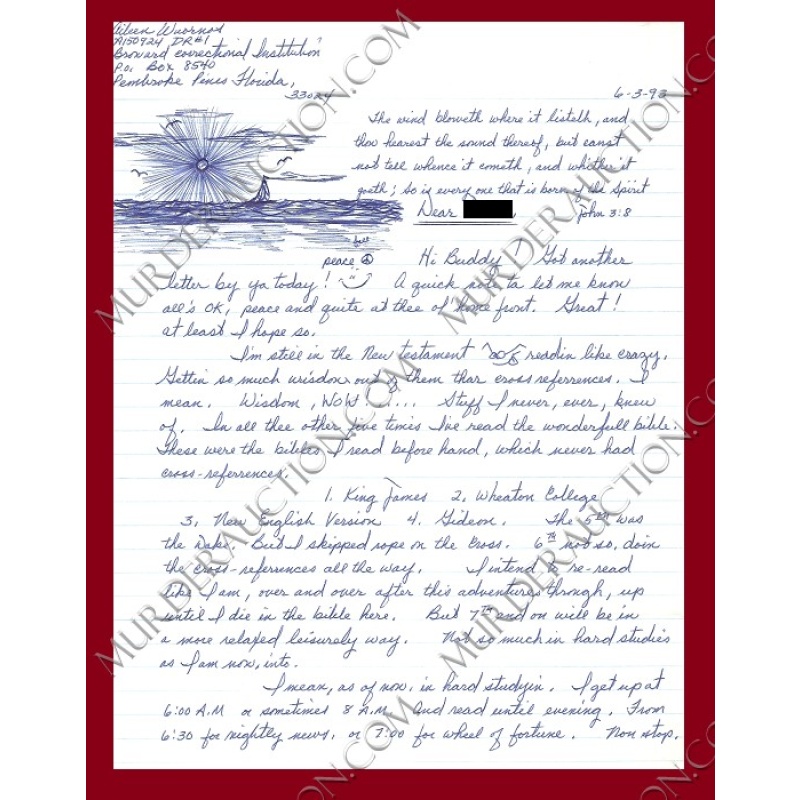 Aileen Wuornos
A150924 DR#1
Broward correctional Institution
P.O. Box 8540
Pembroke Pines Florida,
33024
6-3-93
The wind bloweth where it listeth, and
thou hearest the sound thereof, but canst
not tell whence it cometh, and whither it
goeth; so is every one that is born of the Spirit
John 3:8
Dear
peace
Hi Buddy! Got another
letter by ya today! A quick note to let me know
all's OK, peace and quite at thee ol' home front. Great!
at least I hope so.
I'm still in the New testament readin like crazy.
Gettin' so much wisdom out of them thar cross references. I
mean. Wisdom, WOW!.... Stuff I never, ever, knew
of. In all thee other five times I've read the wonderfull bible.
These were the bibles I read before hand, which never had
cross-referrences.
1. King James 2. Wheaton College
3. New English Version 4. Gideon. The 5TH was
the Dake. But I skipped rope on the Cross. 6TH not so, doin
the cross-references all the way. I intend to re-read
like I am, over and over after this adventures through, up
until I die in the bible here. But 7TH and on will be in
a more relaxed leisurely way. Not so much in hard studies
as I am now, into.
I mean, as of now, in hard studyin. I get up at
6:00 A.M or sometimes 8 A.M. And read until evening. From
6:30 for nightly news, or 7:00 for wheel of fortune. Non stop.
MURDERAUCTION.COM